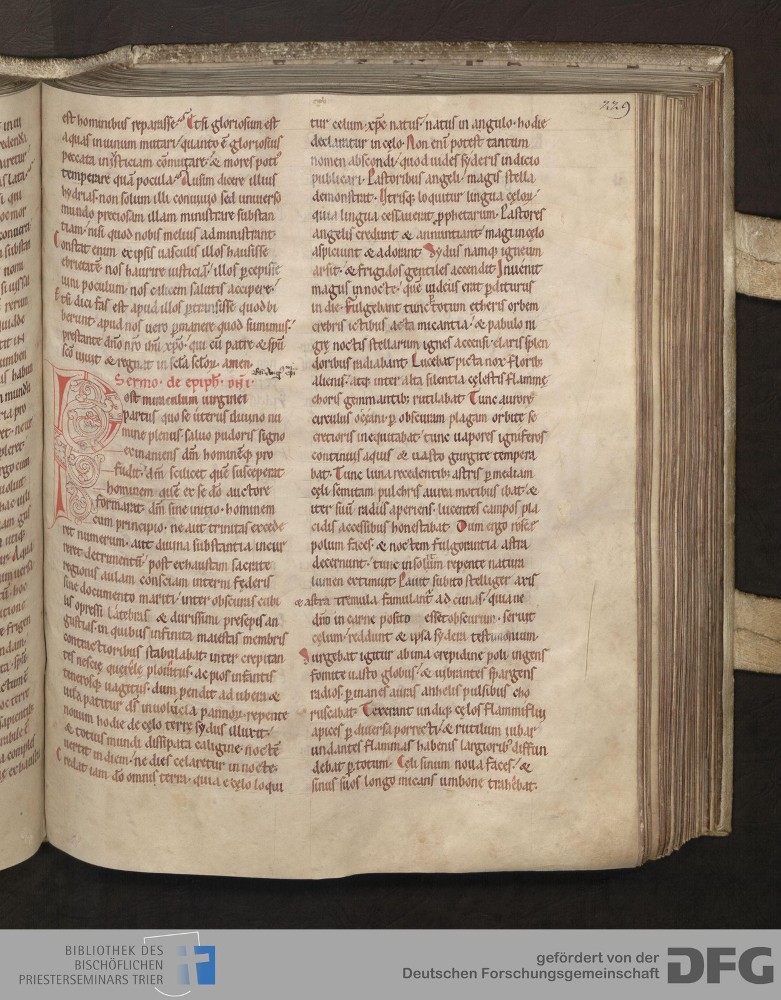 229
est hominibus reparasse. Et si gloriosum est
aquas in uinum mutari / quanto ē gloriosius
peccata in iusticiam cōmutare / & mores poti9
temperare quā pocula. Ausim dicere illius
hydrias non solum illi conuiuio sed uniuerso
mundo preciosam illam ministrare substan
tiam / nisi quod nobis melius administrant.
Constat enim ex ipsis uasculis illos hausisse
ebrietatē nos haurire iusticiā / illos ꝑcepisse
uini poculum / nos calicem salutis accipere /
fas est apud illos ꝑtransisse quod bi
berunt / apud nos uero ꝑmanere quod sumimus.
prestante dn̄o nr̄o ihū xp̄o. qui cū patre & spū
sc̄o uiuit & regnat in sc̄la sc̄lor. amen.
Sermo. de epiph. dn̄i.
Post miraculum uirginei
partus quo se uterus diuino nu
mine plenus saluo pudoris signo
exinaniens dm̄ hominēq pro
fudit / dm̄ scilicet quē susceperat
hominem quē ex se dō auctore
formarat. dm̄ sine initio. hominem
cum principio. ne aut trinitas excede
ret numerum. aut diuina substantia incur
reret detrimentū / post exhaustum sacrate
regionis aulam consciam interni federis
sine documento mariti / inter obscuras cubi
lis opressi latebras & durissimi presepis an
gustias in quibus infinita maiestas membris
contractioribus stabulabat. inter crepitan
tis nescie querele ploratus. ac pios infantis
tenerosq uagitus. dum pendit ad ubera &
uisa patitur ds̄ inuolucra pannor. repente
nouum hodie de cęlo terris sydus illuxit /
& totius mundi dissipata caligine. noctē
uertit in diem / ne dies celaretur in nocte.
Credat iam dō omnis terra. quia e cęlo loqui
tur celum. xpc̄ natus / natus in angulo. hodie
declaratur in cęlo. Non enī potest tantum
nomen abscondi / quod uidet syderis indicio
publicari. Pastoribus angeli / magis stella
demonstrat. Utrisq loquitur lingua cęlor /
quia lingua cessauerat ꝓphetarum. Pastores
angelis credunt & annuntiant / magi in cęlo
aspiciunt & adorant. Sydus namq igneum
arsit. & frigidos gentiles accendit. Inuenit
magus in nocte / quē iudeus erat ꝑditurus
in die. Fulgebant tunc totum etheris orbem
crebris ictibus acta micantia / & pabulo ni
grę noctis stellarum ignes accensi. claris splen
doribus radiabant. Lucebat picta nox floribus
alienis / atq inter alta silentia cęlestis flammę
choris gemmantibus rutilabat. Tunc aurorę
circulus occani ꝑ obscuram plagam orbite se
cretioris inequitabat / tunc uapores igniferos
continuis aquis & uasto gurgite tempera
bat. Tunc luna recedentib astris ꝑ mediam
cęli semitam pulchris aurea motibus ibat / &
iter suū radiis aperiens lucentes campos pla
cidis accessibus honestabat. Dum ergo
polum faces / & noctem fulgorantia astra
decernunt / tunc in solitam repente natura
lumen extimuit. Pauit subito stelliger axis
& astra tremula famulantur ad cunas / quia ne
dn̄o in carne posito esset obscurum. seruit
cęlum / reddunt & ipsa sydera testimonium.
Surgebat igitur ab ima crepidine poli ingens
fomite uasto globus / & uibrantes spargens
radios ꝑ inanes auras anhelis pulsibus cho
ruscabat. Texerant undiq cęlos flammiflui
apices ꝑ diuersa porrecti / & rutilum iubar
undantes flammas habenis largioribus diffun
debat ꝑ totum. Celi sinum noua faces / &
sinus suos longo micans umbone trahebat.
BIBLIOTHEK DES
BISCHÖFLICHEN
PRIESTERSEMINARS TRIER
gefördert von der
Deutschen Forschungsgemeinschaft
DFG